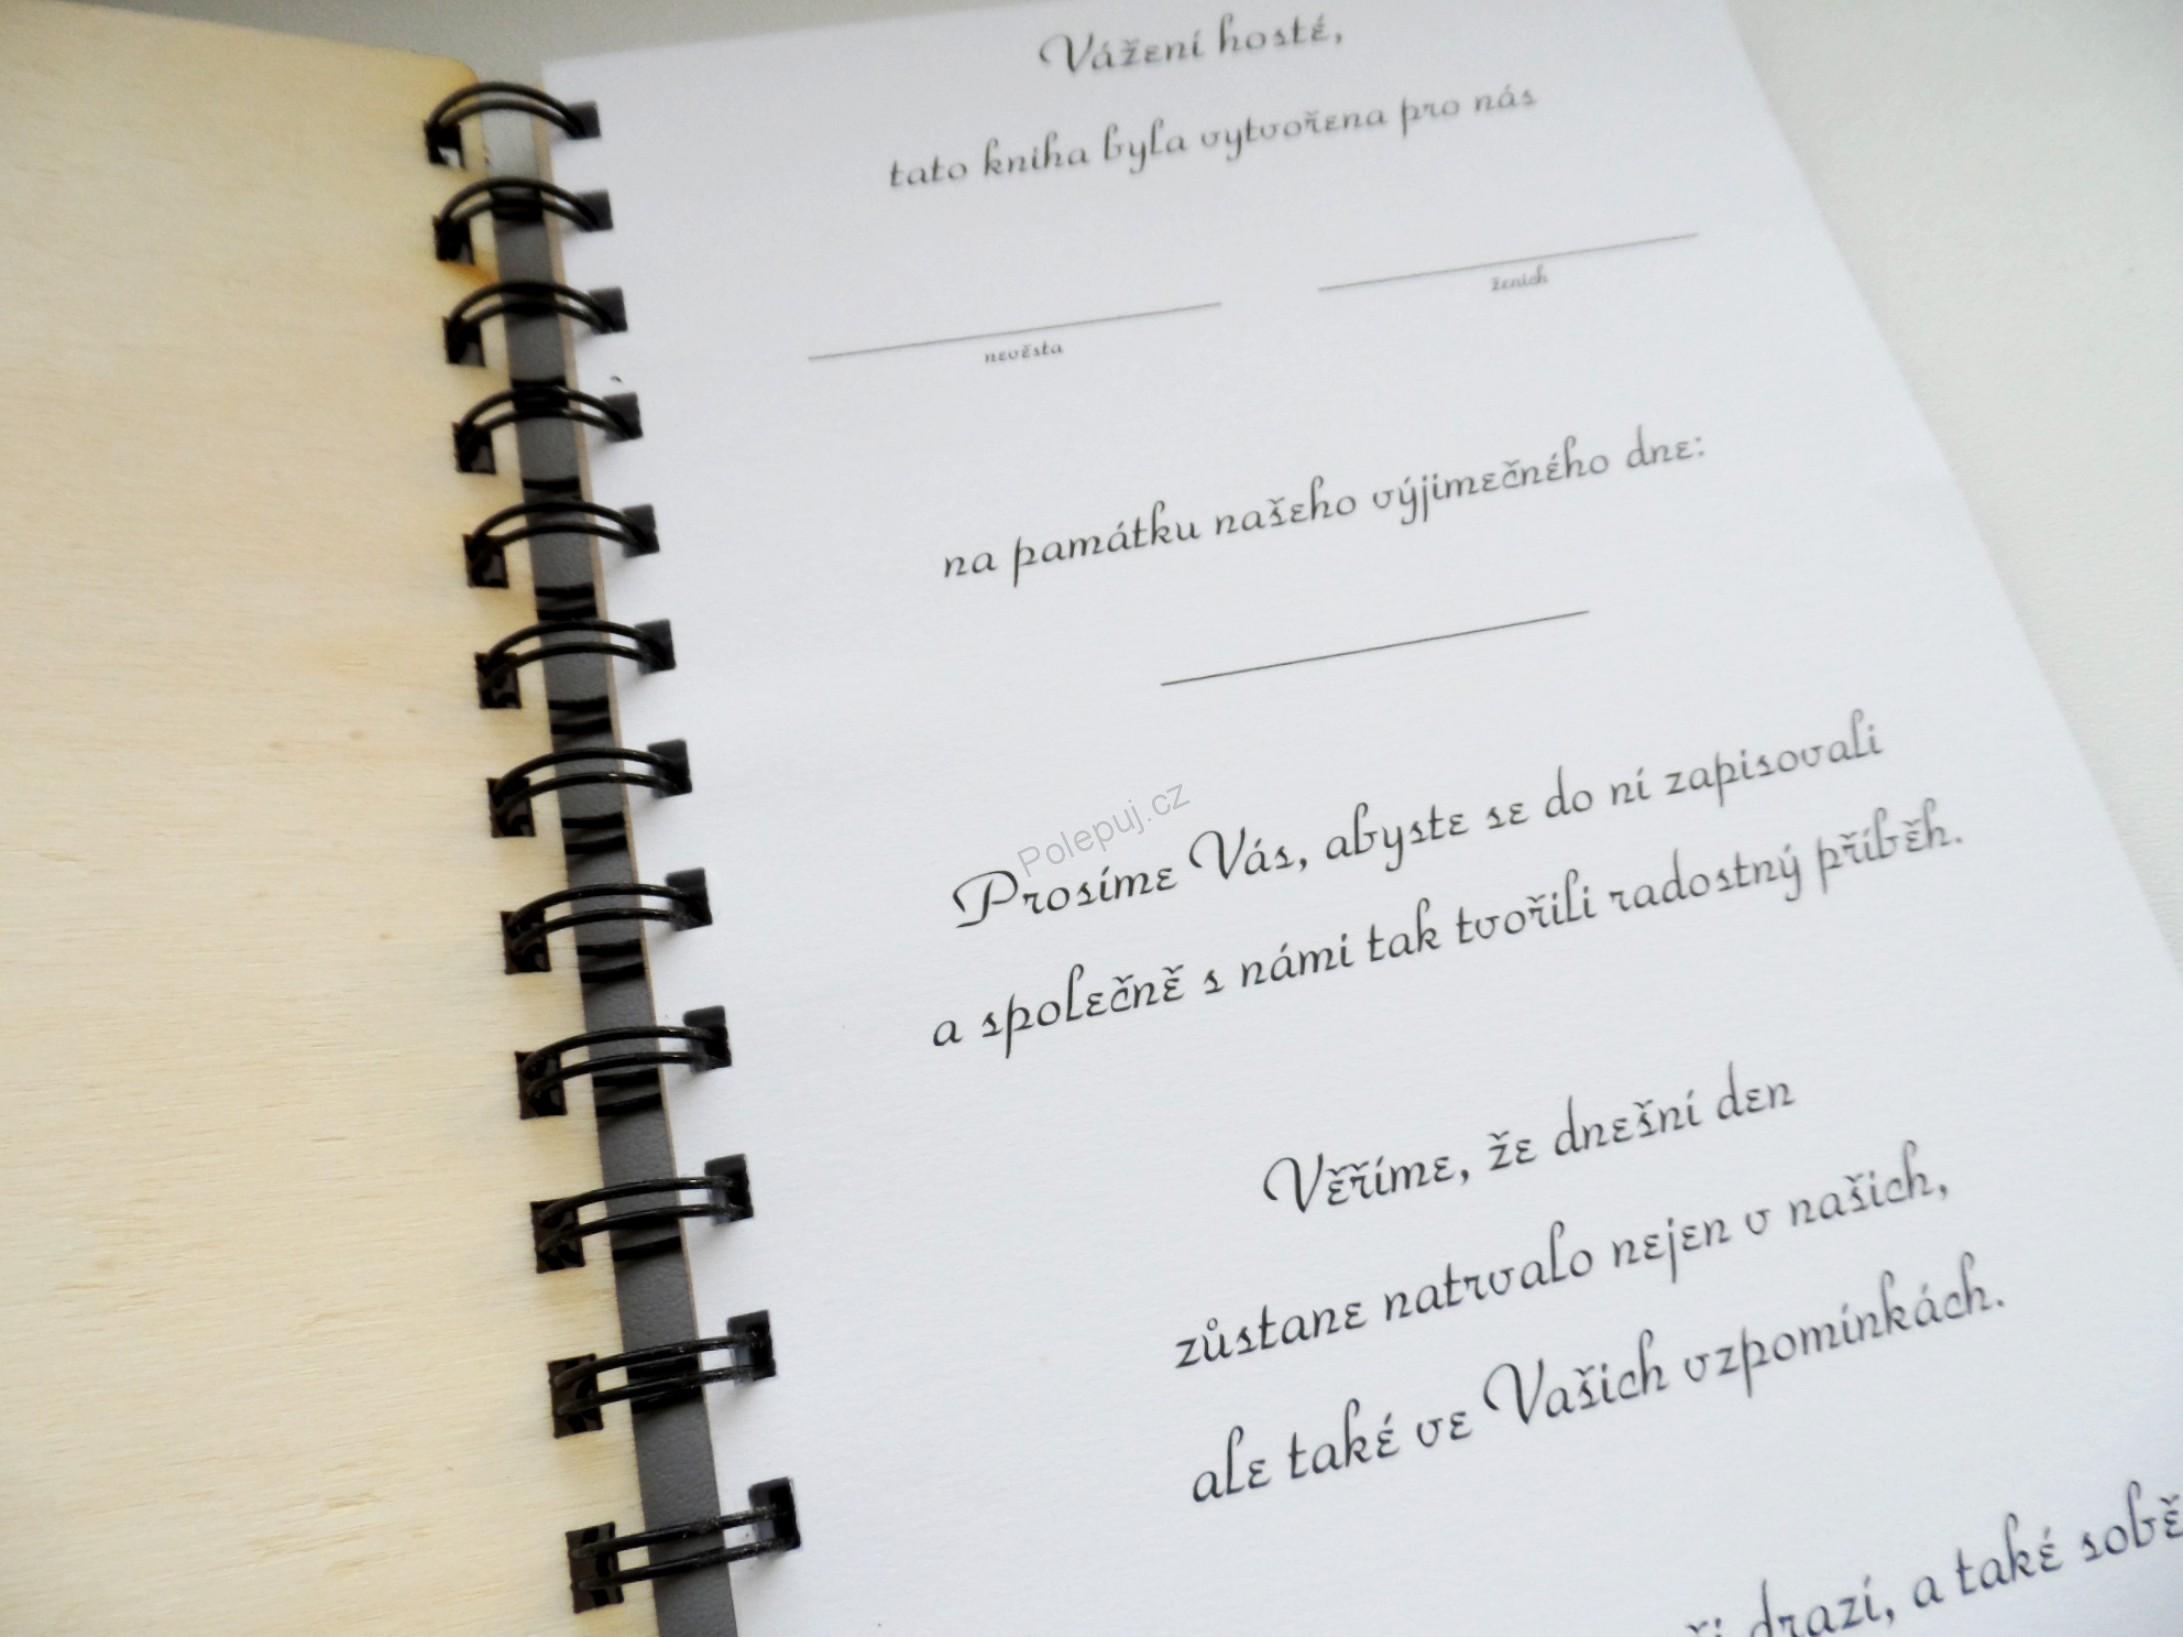 Vážení hosté,
tato kniha byla vytvořena pro nás
nevěsta
ženich
na památku našeho výjimečného dne:
Polepuj.cz
Prosíme Vás, abyste se do ní zapisovali
a společně s námi tak tvořili radostný příběh.
Věříme, že dnešní den
zůstane natrvalo nejen v našich,
ale také ve Vašich vzpomínkách.
drazí, a také sobě